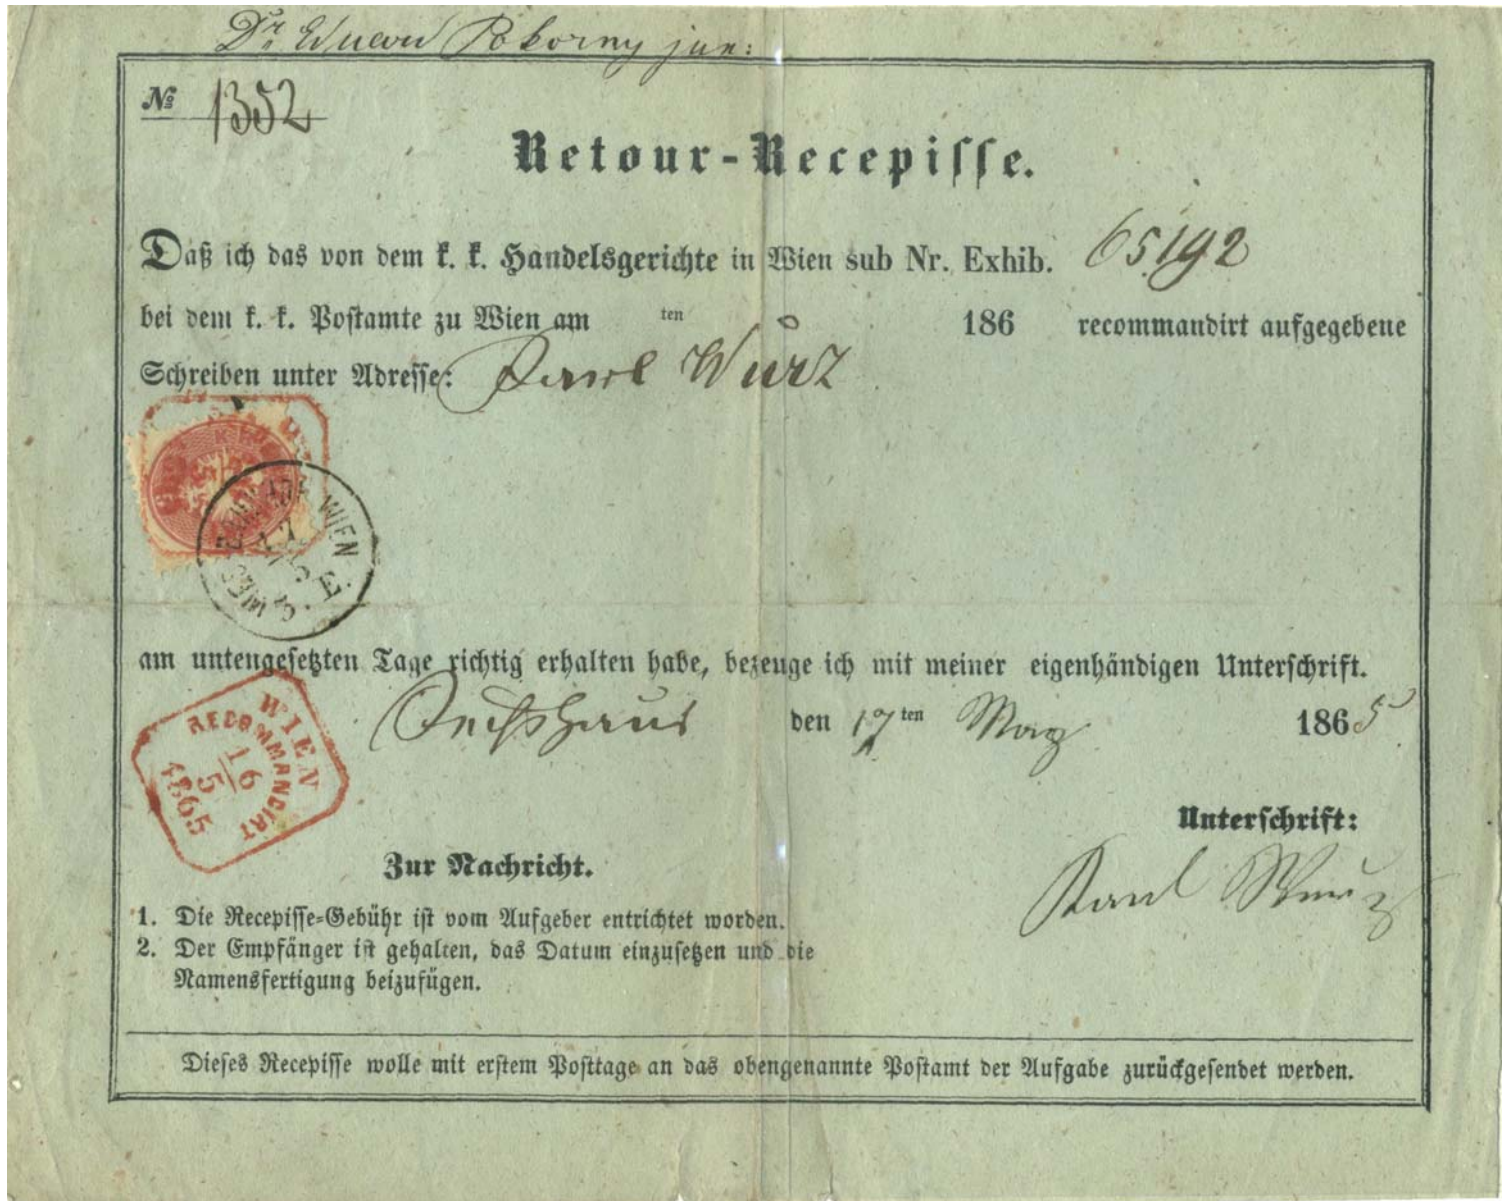 Dr. Eduard Pokorny jun:
№ 1352
Retour-Recepisse.
Daß ich das von dem k. k. Handelsgerichte in Wien sub Nr. Exhib. 65192
bei dem k. k. Postamte zu Wien am ten 186 recommandirt aufgegebene
Schreiben unter Adresse: Karl Wurz
WIEN
17
5
am untengesetzten Tage richtig erhalten habe, bezeuge ich mit meiner eigenhändigen Unterschrift.
Sechshaus den 17ten May 1865
WIEN
RECOMMANDIRT
16
5
1865
Unterschrift:
Karl Wurz
Zur Nachricht.
1. Die Recepisse-Gebühr ist vom Aufgeber entrichtet worden.
2. Der Empfänger ist gehalten, das Datum einzusetzen und die
Namensfertigung beizufügen.
Dieses Recepisse wolle mit erstem Posttage an das obengenannte Postamt der Aufgabe zurückgesendet werden.